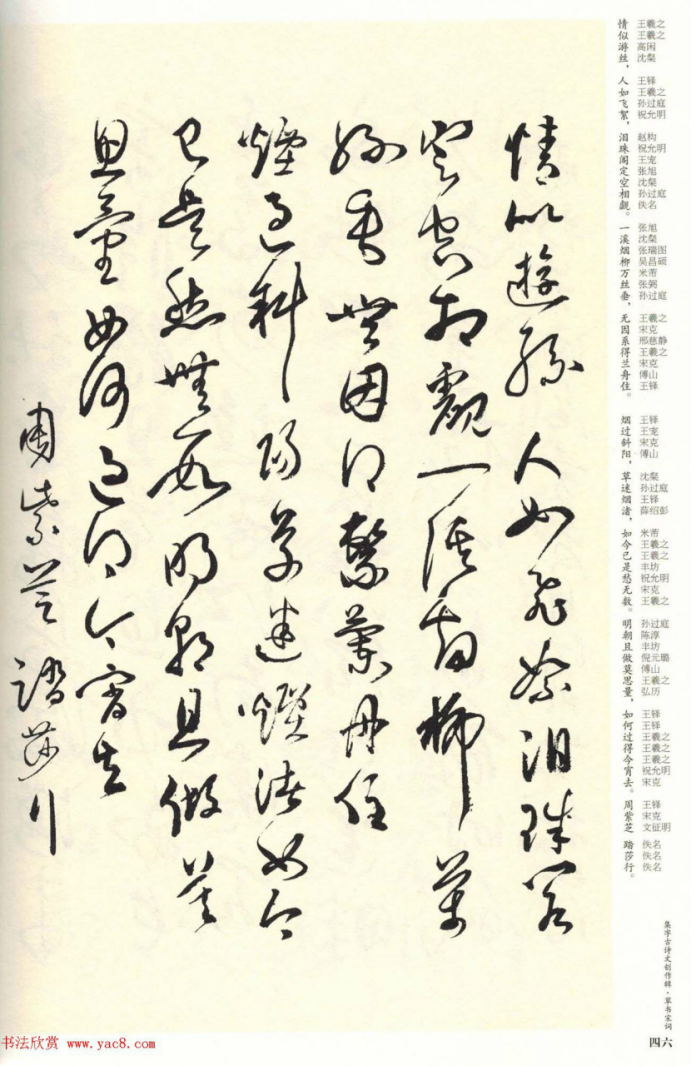 王羲之
王羲之
高闲
沈粲
王铎
王羲之
孙过庭
祝允明
赵构
祝允明
王宠
张旭
沈粲
孙过庭
佚名
张旭
沈粲
张瑞图
吴昌硕
米芾
张弼
孙过庭
王羲之
宋克
邢慈静
王羲之
宋克
傅山
王铎
王铎
王宠
宋克
傅山
沈粲
孙过庭
王铎
薛绍彭
米芾
王羲之
王羲之
丰坊
祝允明
宋克
王羲之
孙过庭
陈淳
丰坊
倪元璐
傅山
王羲之
弘历
王铎
王铎
王羲之
王羲之
王羲之
祝允明
宋克
王铎
宋克
文征明
佚名
佚名
佚名
情似游丝，人如飞絮，泪珠阁定空相觑。一溪烟柳万丝垂，无因系得兰舟住。 烟过斜阳，草迷烟渚，如今已是愁无数。明朝且做莫思量，如何过得今宵去。 周紫芝 踏莎行。
集字古诗文创作辑·草书宋词
四六
情似遊絲人如飛絮泪珠閣
定空相覷一溪烟柳萬
絲垂無因得繫蘭舟住
煙過斜陽草迷煙渚如今
已是愁無數明朝且做莫
思量如何過得今宵去
周紫芝踏莎行
书法欣赏 www.yac8.com